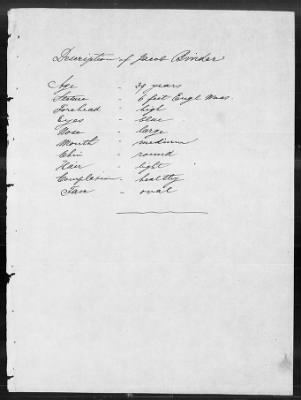 Description of Jacob Binder
Age - 39 years
Stature - 6 feet Engl Meas.
Forehead - high
Eyes - blue
Nose - large
Mouth - medium
Chin - round
Hair - light
Complexion - healthy
Face - oval